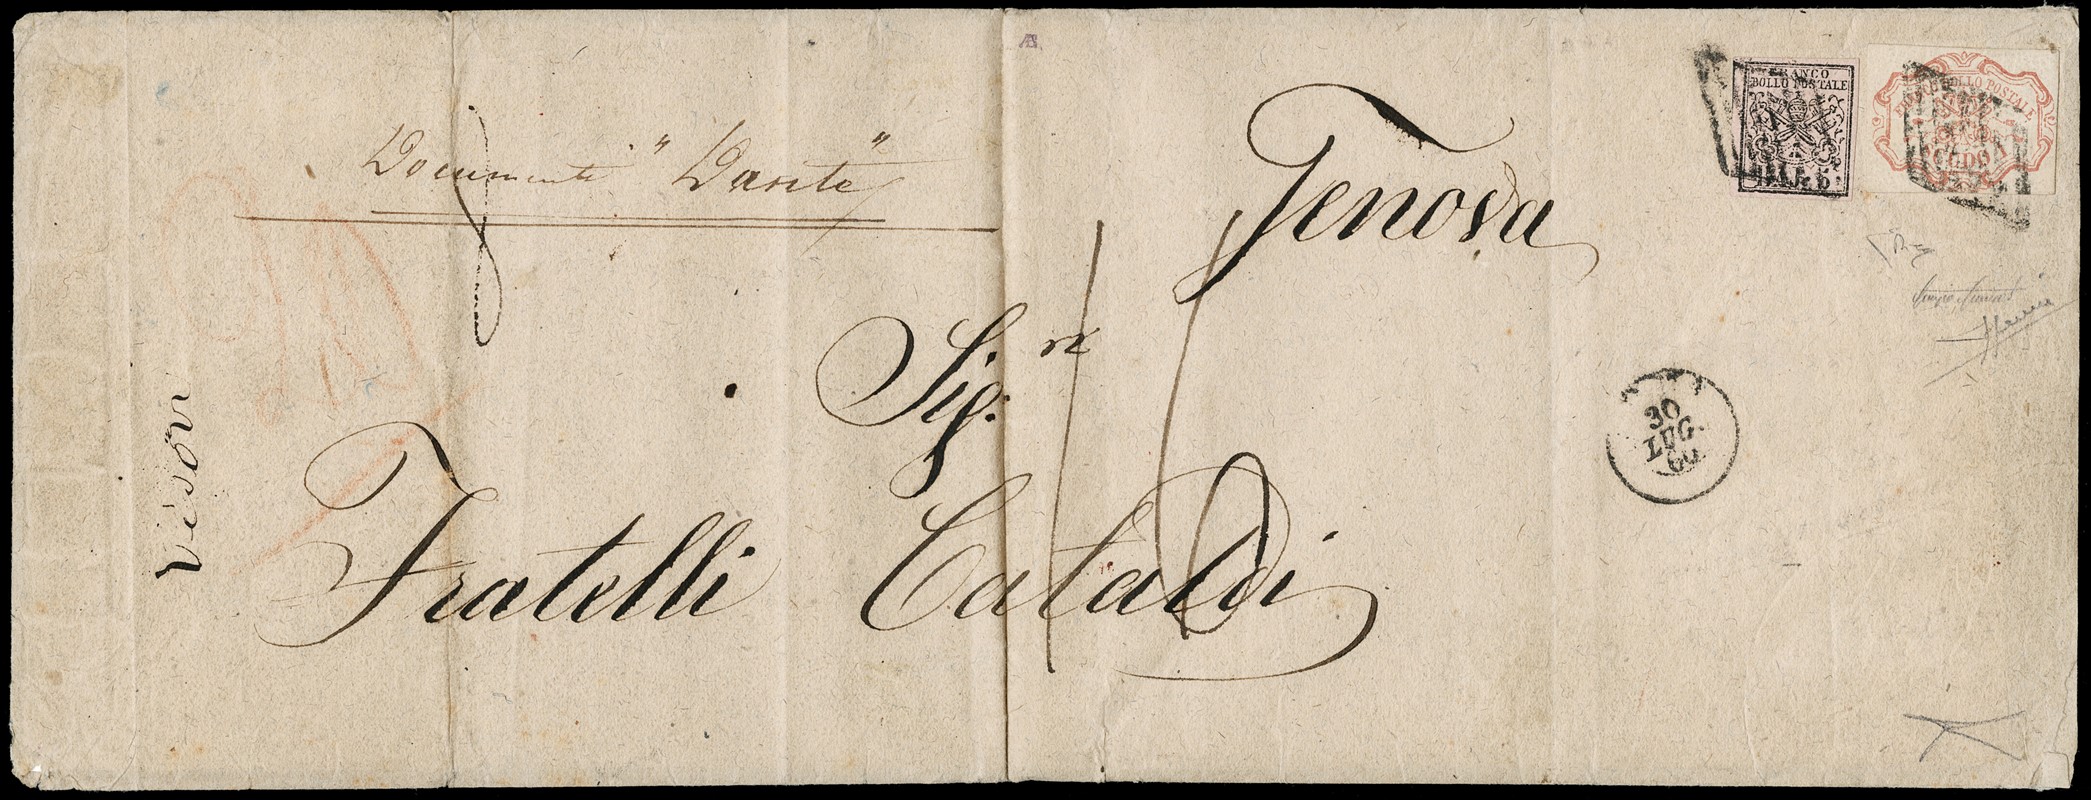 FRANCO
BOLLO POSTALE
BAJ. 5
FRANCO BOLLO POSTALE
Documenti "Dante"
Genova
Sig.ri
30
LUG.
60
Fratelli Cataldi
16